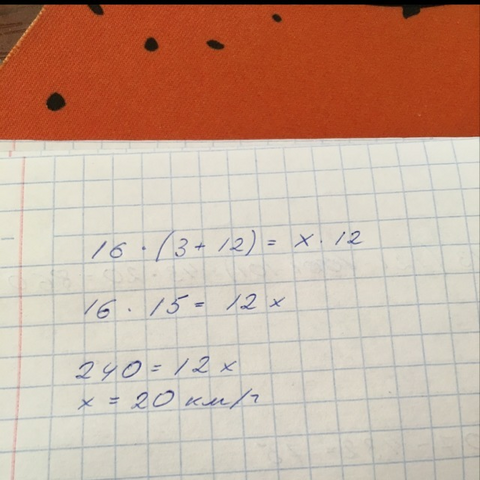 16 · (3 + 12) = x · 12
16 · 15 = 12 x
240 = 12 x
x = 20 км/ч